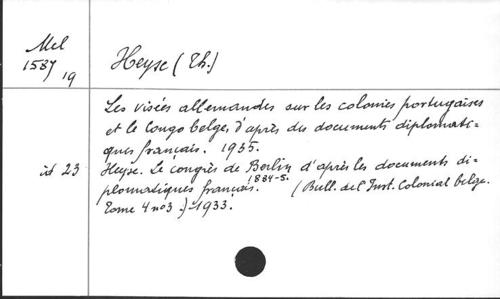 Mel
1587
19
Heyse (Th.)
Les visées allemandes sur les colonies portugaises
et le Congo belge, d'après des documents diplomati-
ques français. 1935.
id 23 Heyse. Le congrès de Berlin d'après les documents di-
1884-5.
plomatiques français. (Bull. de l'Inst. Colonial belge.
Tome 4 no3.) 1933.